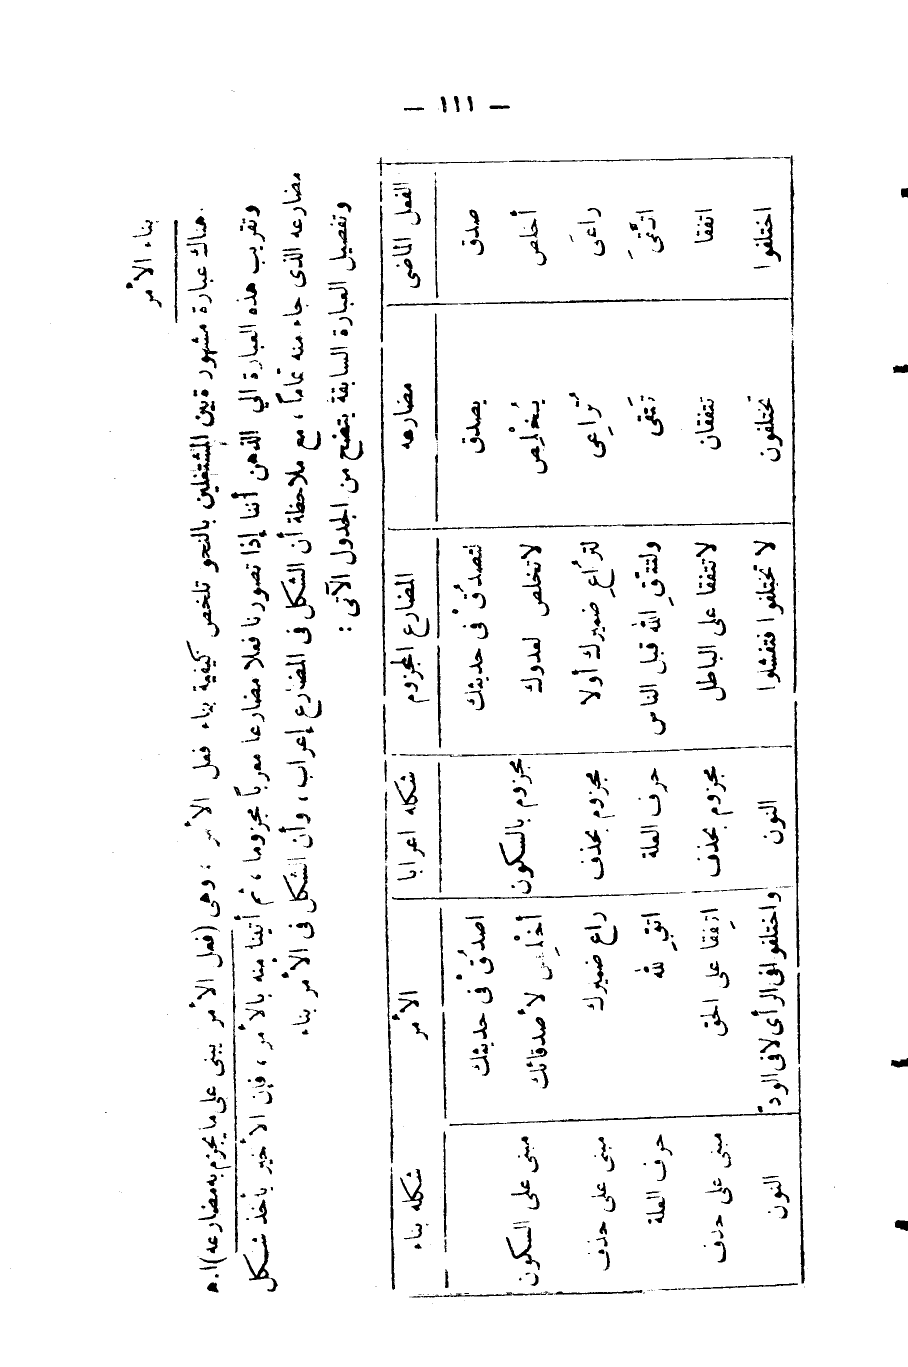 — ١١١ —
بناء الأمر
هناك عبارة مشهورة بين المشتغلين بالنحو تلخص كيفية بناء فعل الأمر ، وهى (فعل الأمر يبنى على ما يجزم به مضارعه) ا.ه
وتقريب هذه العبارة إلي الذهن أننا إذا تصورنا فعلا مضارعا معرباً مجزوما ، ثم أتينا منه بالأمر ، فإن الأخير يأخذ شكل
مضارعه الذى جاء منه تماماً ، مع ملاحظة أن الشكل فى المضارع إعراب ، وأن الشكل فى الأمر بناء
وتفصيل العبارة السابقة يتضح من الجدول الآتى :
الفعل الماضى | مضارعه | المضارع المجزوم | شكله اعرابا | الأمر | شكله بناء
صدق | يصدق | لتصدُقْ فى حديثك | | اصدُقْ فى حديثك
أخلص | يُخْلِص | لا تخلص لعدوك | مجزوم بالسكون | أخْلِص لأصدقائك | مبنى على السكون
راعَى | تُراعِى | لتراعِ ضميرك أولا | مجزوم بحذف | راع ضميرك | مبنى على حذف
اتَّقىَ | تتَّقى | ولتتقِ الله قبل الناس | حرف العلة | اتقِ الله | حرف العلة
اتفقا | تتفقان | لا تتفقا على الباطل | مجزوم بحذف | اتفِقا على الحق | مبنى على حذف
اختلفوا | تختلفون | لا تختلفوا فتفشلوا | النون | واختلفوا فى الرأى لا فى الودّ | النون